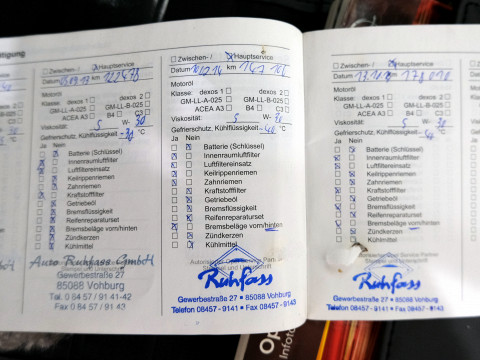 tigung
Zwischen- / Hauptservice
Datum km 122478
Motoröl
Klasse: dexos 1 dexos 2
GM-LL-A-025 GM-LL-B-025
ACEA A3 B4 C3
Viskosität: 5 W- 30
Gefrierschutz, Kühlflüssigkeit -30 °C
Ja Nein
Batterie (Schlüssel)
Innenraumluftfilter
Luftfiltereinsatz
Keilrippenriemen
Zahnriemen
Kraftstofffilter
Getriebeöl
Bremsflüssigkeit
Reifenreparaturset
Bremsbeläge vorn/hinten
Zündkerzen
Kühlmittel
Auto Ruhfass GmbH
Gewerbestraße 27
85088 Vohburg
Tel. 0 84 57 / 91 41-42
Fax 0 84 57 / 91 43
Zwischen- / Hauptservice
Datum km
Motoröl
Klasse: dexos 1 dexos 2
GM-LL-A-025 GM-LL-B-025
ACEA A3 B4 C3
Viskosität: 5 W- 30
Gefrierschutz, Kühlflüssigkeit -40 °C
Ja Nein
Batterie (Schlüssel)
Innenraumluftfilter
Luftfiltereinsatz
Keilrippenriemen
Zahnriemen
Kraftstofffilter
Getriebeöl
Bremsflüssigkeit
Reifenreparaturset
Bremsbeläge vorn/hinten
Zündkerzen
Kühlmittel
Ruhfass
Gewerbestraße 27 • 85088 Vohburg
Telefon 08457 - 9141 • Fax 08457 - 9143
Zwischen- / Hauptservice
Datum km
Motoröl
Klasse: dexos 1 dexos 2
GM-LL-A-025 GM-LL-B-025
ACEA A3 B4 C3
Viskosität: 5 W- 30
Gefrierschutz, Kühlflüssigkeit °C
Ja Nein
Batterie (Schlüssel)
Innenraumluftfilter
Luftfiltereinsatz
Keilrippenriemen
Zahnriemen
Kraftstofffilter
Getriebeöl
Bremsflüssigkeit
Reifenreparaturset
Bremsbeläge vorn/hinten
Zündkerzen
Kühlmittel
Ruhfass
Gewerbestraße 27 • 85088 Vohburg
Telefon 08457 - 9141 • Fax 08457 - 9143
Op
Infot